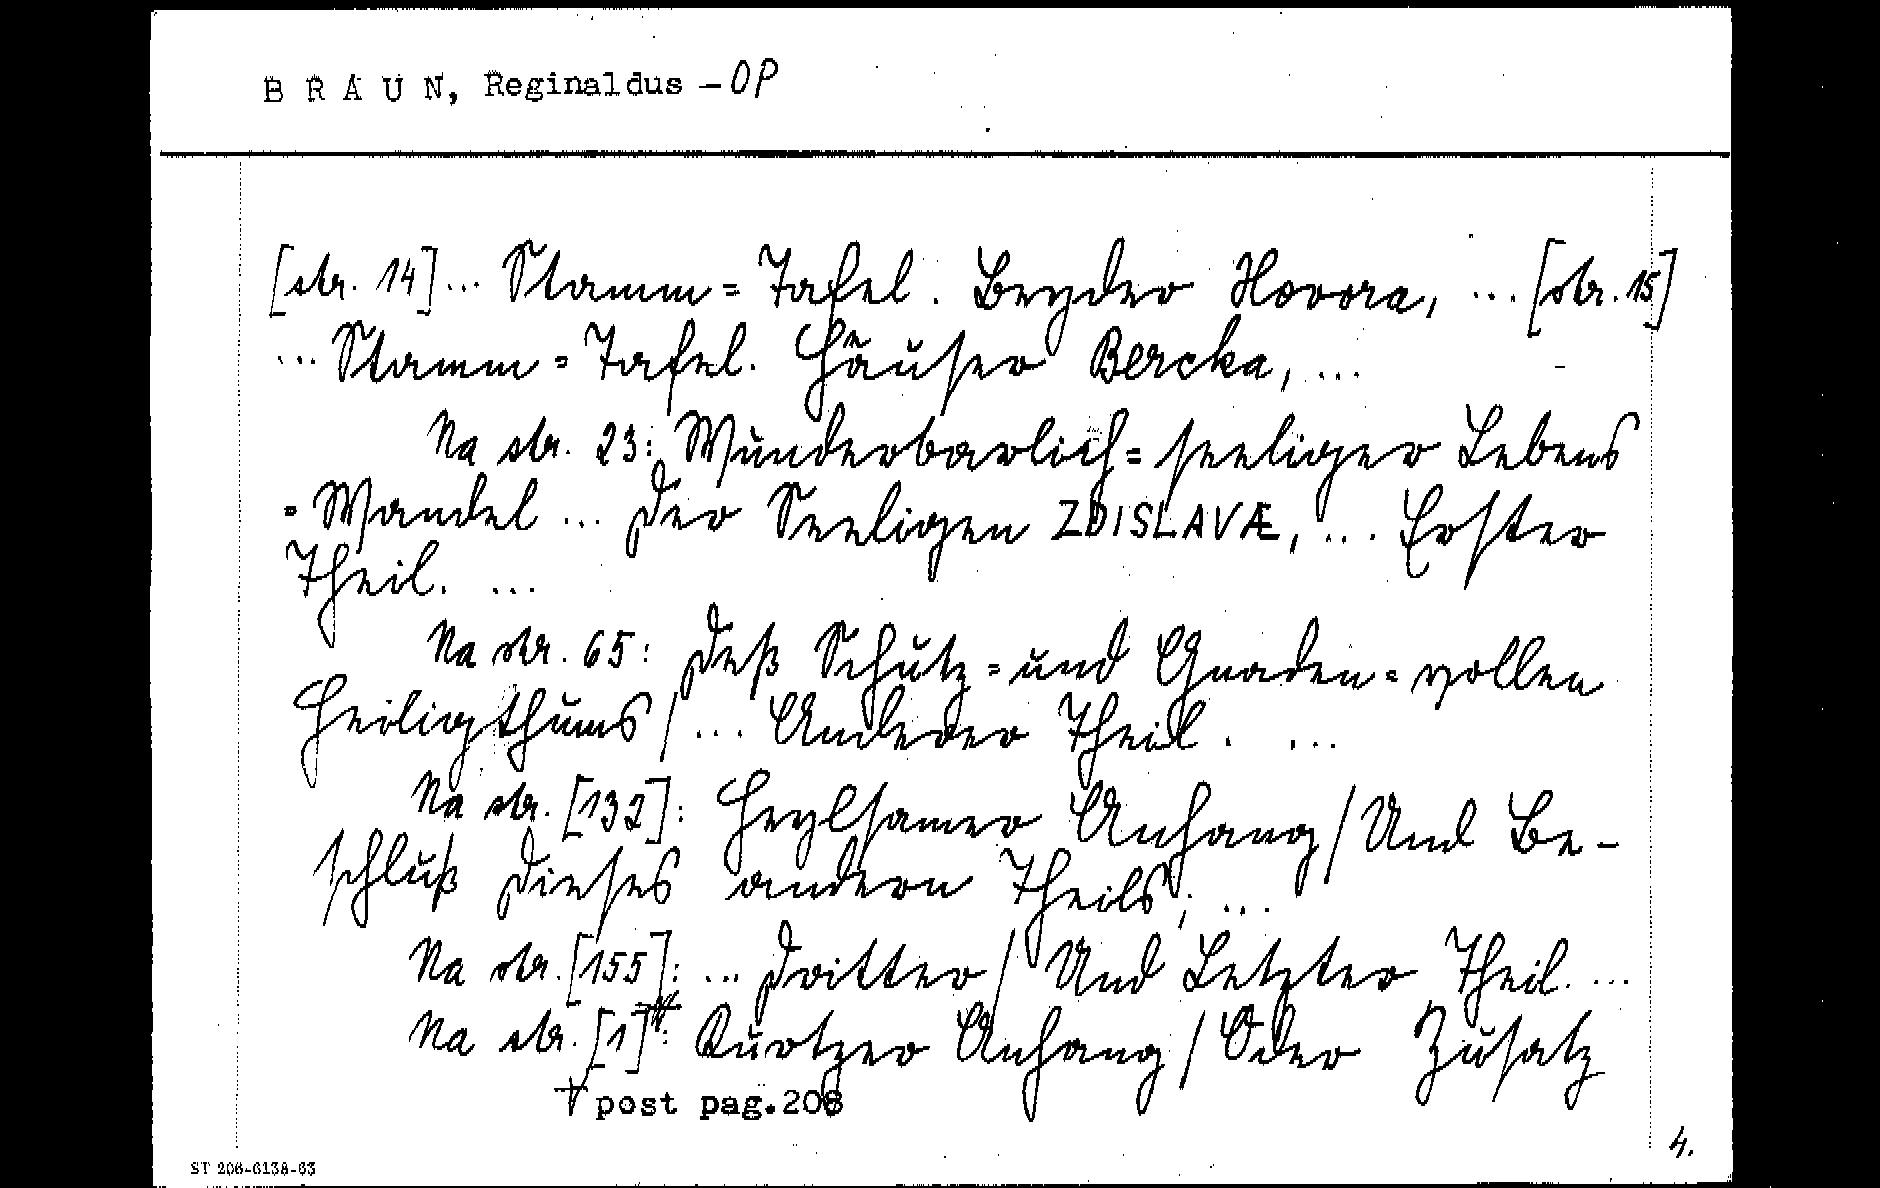 B R A U N, Reginaldus - OP
[str. 14]... Stamm=Tafel. Beyder Hovora, ... [str. 15]
... Stamm=Tafel. Häuser Bercka, ...
Na str. 23: Wunderbarlich=seeliger Lebens
=Wandel ... Der Seeligen ZDISLAVÆ, ... Erster
Theil. ...
Na str. 65: Deß Schutz=und Gnaden=vollen
Heiligthums / ... Anderer Theil. ...
Na str. [132]: Heylsamer Anhang / Und Be-
schluß dieses andern Theils; ...
Na str. [155]: ... Dritter / Und Letzter Theil. ...
Na str. [1]+: Kurtzer Anhang / Oder Zusatz
+ post pag. 208
4.
ST 206-6138-63